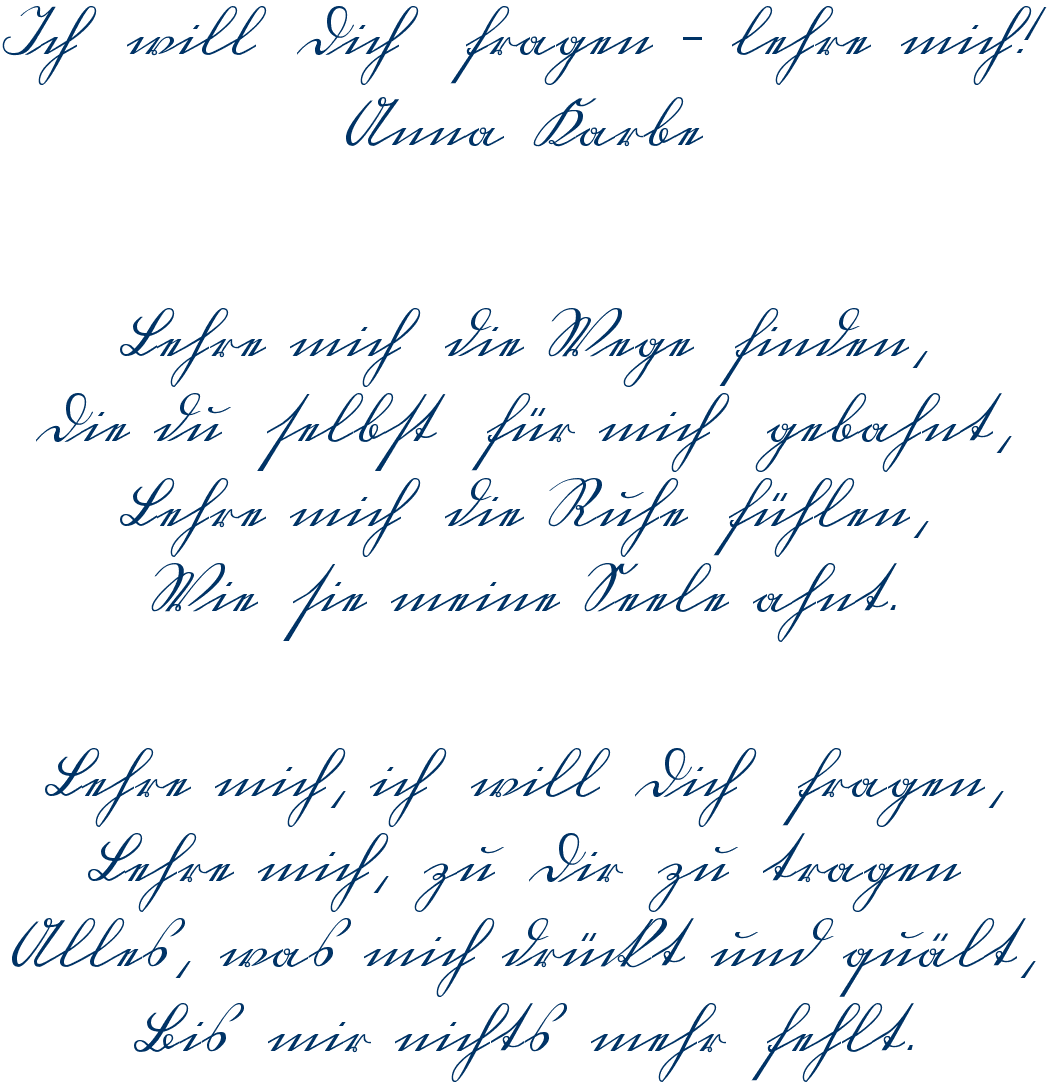 Ich will Dich fragen - lehre mich!
Anna Karbe
Lehre mich die Wege finden,
Die du selbst für mich gebahnt,
Lehre mich die Ruhe fühlen,
Wie sie meine Seele ahnt.
Lehre mich, ich will Dich fragen,
Lehre mich, zu Dir zu tragen
Alles, was mich drückt und quält,
Bis mir nichts mehr fehlt.